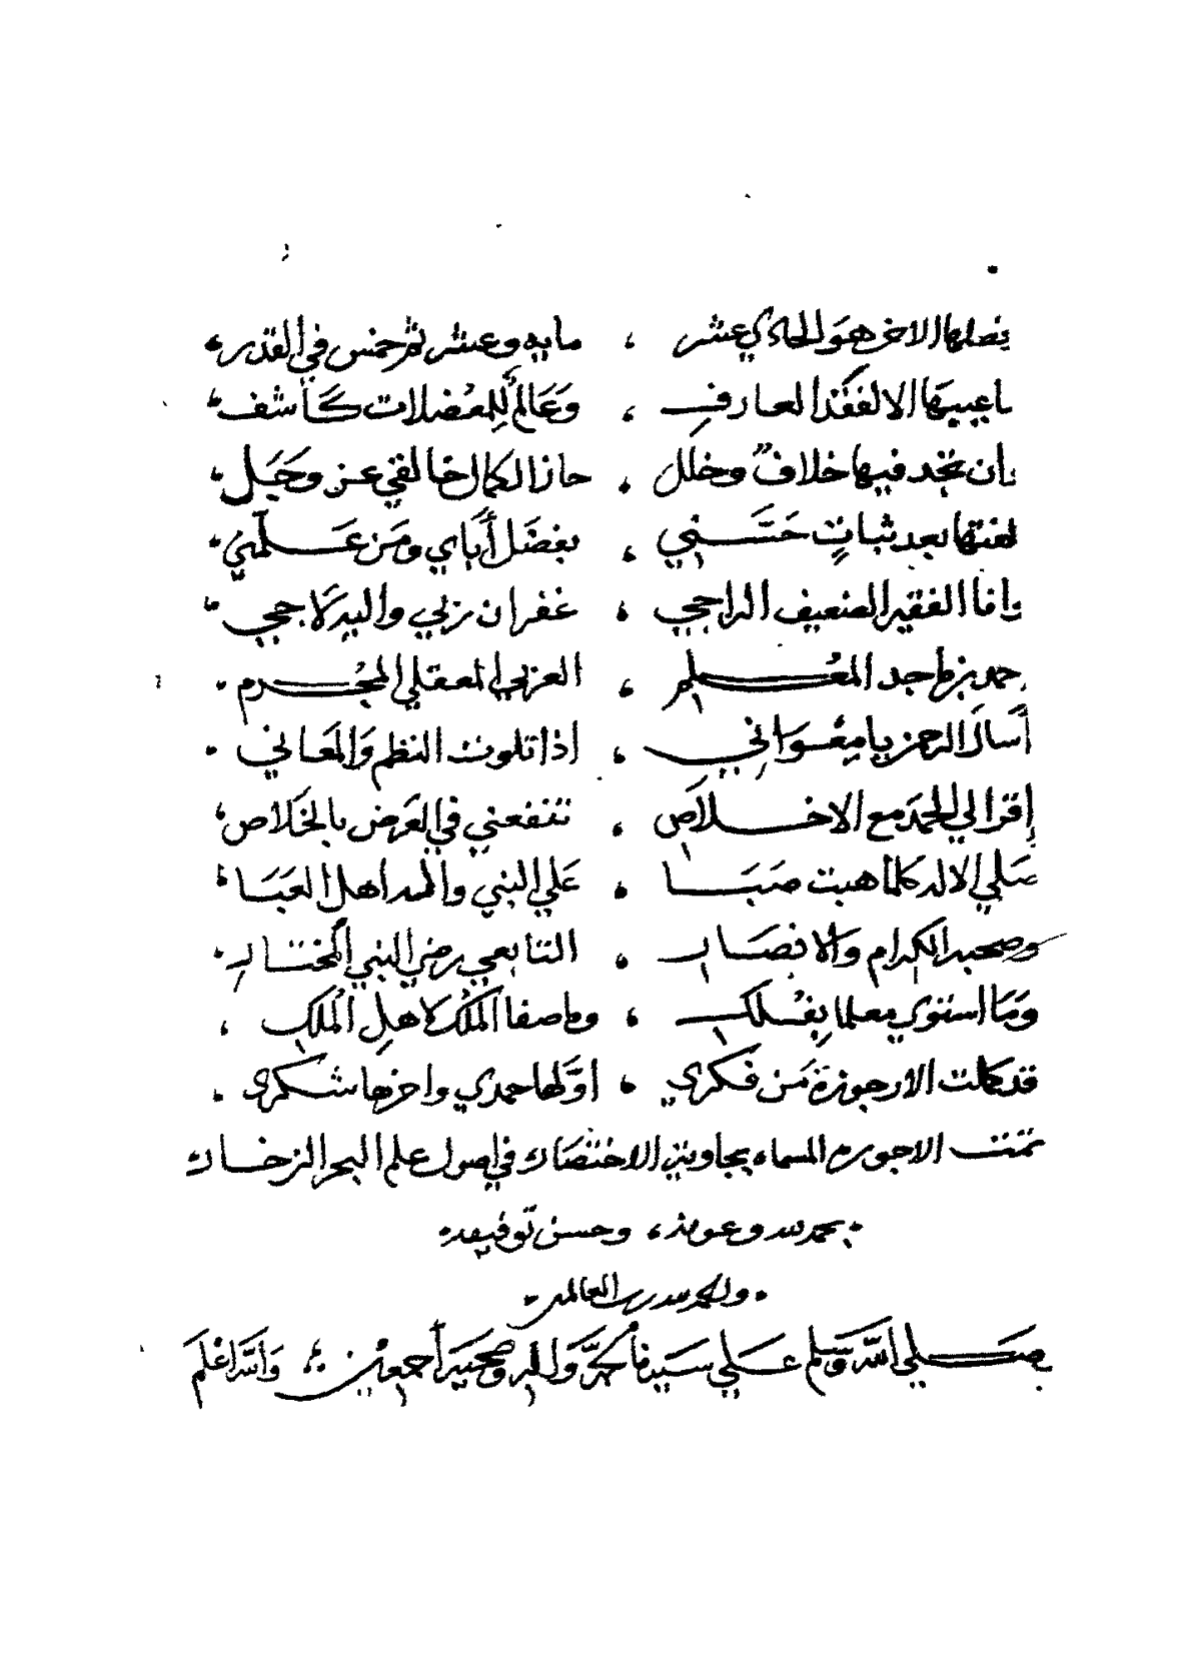 فصلها الاخر هو الحادي عشر ، مايه وعشر ثم خمس في القدر
ما عيبها الا لفقد العارف ، وعالم للمعضلات كاشف
ان تجد فيها خلاف وخلل ، حاز الكمال خالقي عز وجل
بعد ثبات حسني ، بفضل أباي ومن علمني
وانا الفقير الضعيف الراجي ، غفران ربي واليه لاجي
احمد بن ماجد المعلم ، العربي المعقلي المجرم
أسال الرحمن يا مغواني ، اذا تلوت النظم والمعاني
إقرا لي الحمد مع الاخلاص ، تنفعني في العرض بالخلاص
صلي الاله كلما هبت صبا ، علي النبي واله اهل العبا
وصحبه الكرام والانصار ، التابعي رضي النبي المختار
وما استوي معلما بفلك ، وما صفا الملك لاهل الملك
قد كملت الارجوزة من فكري ، اولها حمدي واخرها شكري
تمت الاجوزه المسماه بحاوية الاختصار في اصول علم البحر الزخار
بحمد لله وعونه ، وحسن توفيقه
والحمد لله رب العالمين
وصلي الله وسلم علي سيدنا محمد واله وصحبه أجمعين والله اعلم